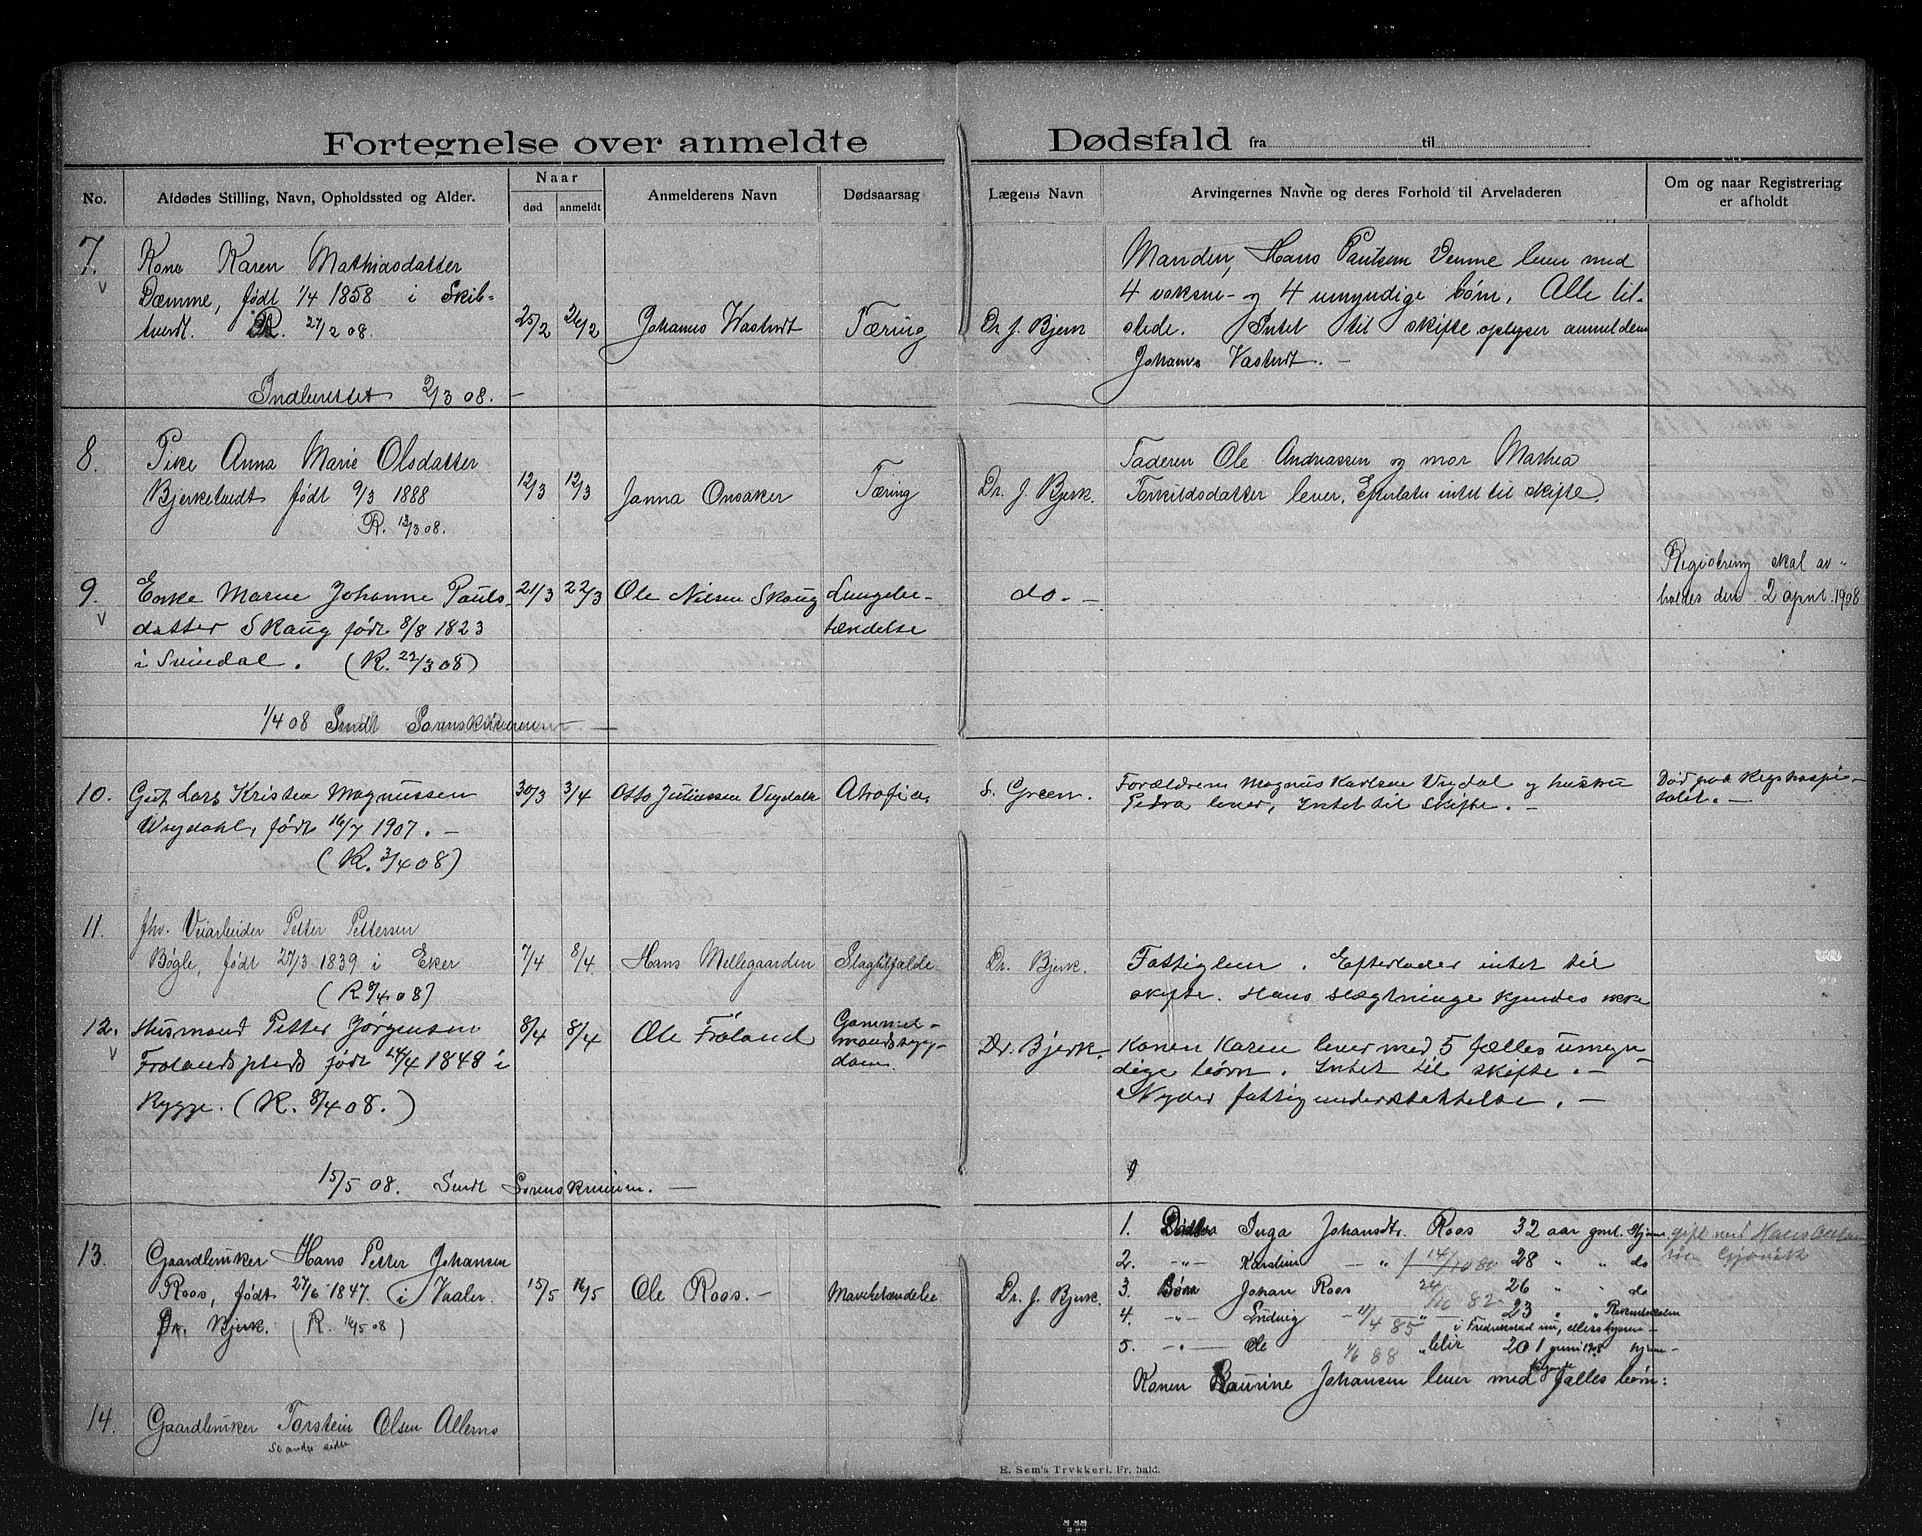 Fortegnelse over anmeldte Dødsfald fra til
No. Afdødes Stilling, Navn, Opholdssted og Alder. Naar død anmeldt Anmelderens Navn Dødsaarsag Lægens Navn Arvingernes Navne og deres Forhold til Arveladeren Om og naar Registrering er afholdt
7. Kone Karen Mathiasdatter
Dæmme, født 1/4 1858 i Skib-
tvedt. R. 27/2 08.
25/2 26/2 Johannes Vastvedt Tæring Dr J. Bjerk
Manden, Hans Paulsen Demme lever med
4 voksne og 4 umyndige børn. Alle til-
stede. Intet til skifte oplyser anmelderen
Johannes Vastvedt. -
Indberettet 2/3 08. -
8. Pike Anna Marie Olsdatter
Bjerketvedt født 9/3 1888
R. 13/3 08.
12/3 12/3 Janna Onsaker Tæring Dr. J. Bjerk.
Faderen Ole Andreassen og mor Mathea
Torkildsdatter lever. Efterlater intet til skifte.
9. Enke Maren Johanne Pauls-
datter Skaug født 8/8 1823
i Svindal. (R. 22/3 08)
21/3 22/3 Ole Nilsen Skaug Lungebe-
tændelse
do. -
Registrering skal av-
holdes den 2 april 1908
1/4 08 Sendt Sorenskriveren -
10. Gut Lars Kristen Magnussen
Vegdahl, født 16/7 1907. -
(R. 3/4 08)
30/3 3/4 Otto Juliussen Vegdahl Atrofia S. Green.
Forældrene Magnus Karlsen Vegdal og hustru
Petra lever, Intet til skifte. -
Død paa Rigshospi-
talet. -
11. fhv. Veiarbeider Petter Pettersen
Bøgle, født 27/3 1839 i Eker
(R 8/4 08)
7/4 8/4. Hans Mellegaarden Slagtilfælde Dr. Bjerk.
Fattiglem. Efterlader intet til
skifte. Hans slægtninge kjendes ikke
12. Husmand Petter Jørgensen
Frolandsplads født 14/4 1848 i
Rygge. (R. 8/4 08.)
8/4 8/4 Ole Froland Gammel-
mandssyg-
dom.
Dr. Bjerk.
Konen Karen lever med 5 fælles umyn-
dige børn. Intet til skifte. -
Nyder fattigunderstøttelse. -
15/5 08. Sendt Sorenskriveren. -
13. Gaardbruker Hans Petter Johansen
Roos, født 27/6 1847. i Vaaler
Dr. Bjerk. (R. 16/5 08)
15/5 16/5 Ole Roos. - Mavebetændelse Dr. J. Bjerk.
1. Inga Johansdtr. Roos 32 aar gml. Hjemme gift med Hans
2. -"- Karstin - " f 14/10 80 28 " " do
3. Børn Johan Roos 82 26 " do
4. -"- Ludvig - 4/4 85 23 " "
i Fredrikstad nu, ellers hjemme -
5. -"- Ole 1/6 88 " blir 20 1 juni 1908 hjemme -
Konen Laurine Johansen lever med følgende fælles børn:
14. Gaardbruker Torstein Olsen Allerno
Se andre side
E. Sem's Trykkeri, Fr.hald.